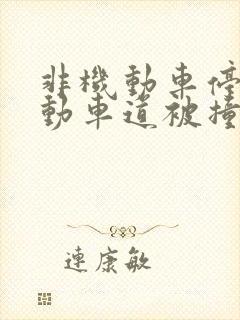 非機動車停
動車道被撞
連康敏